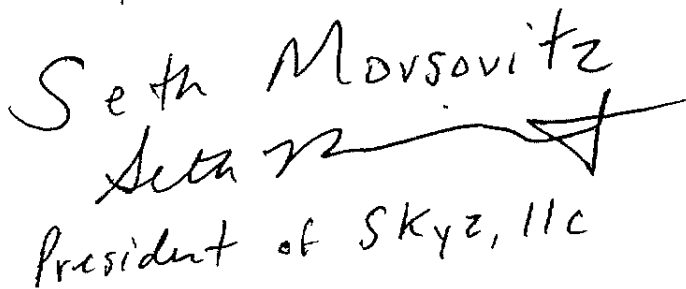 Seth Movsovitz
Seth
President of Skyz, llc